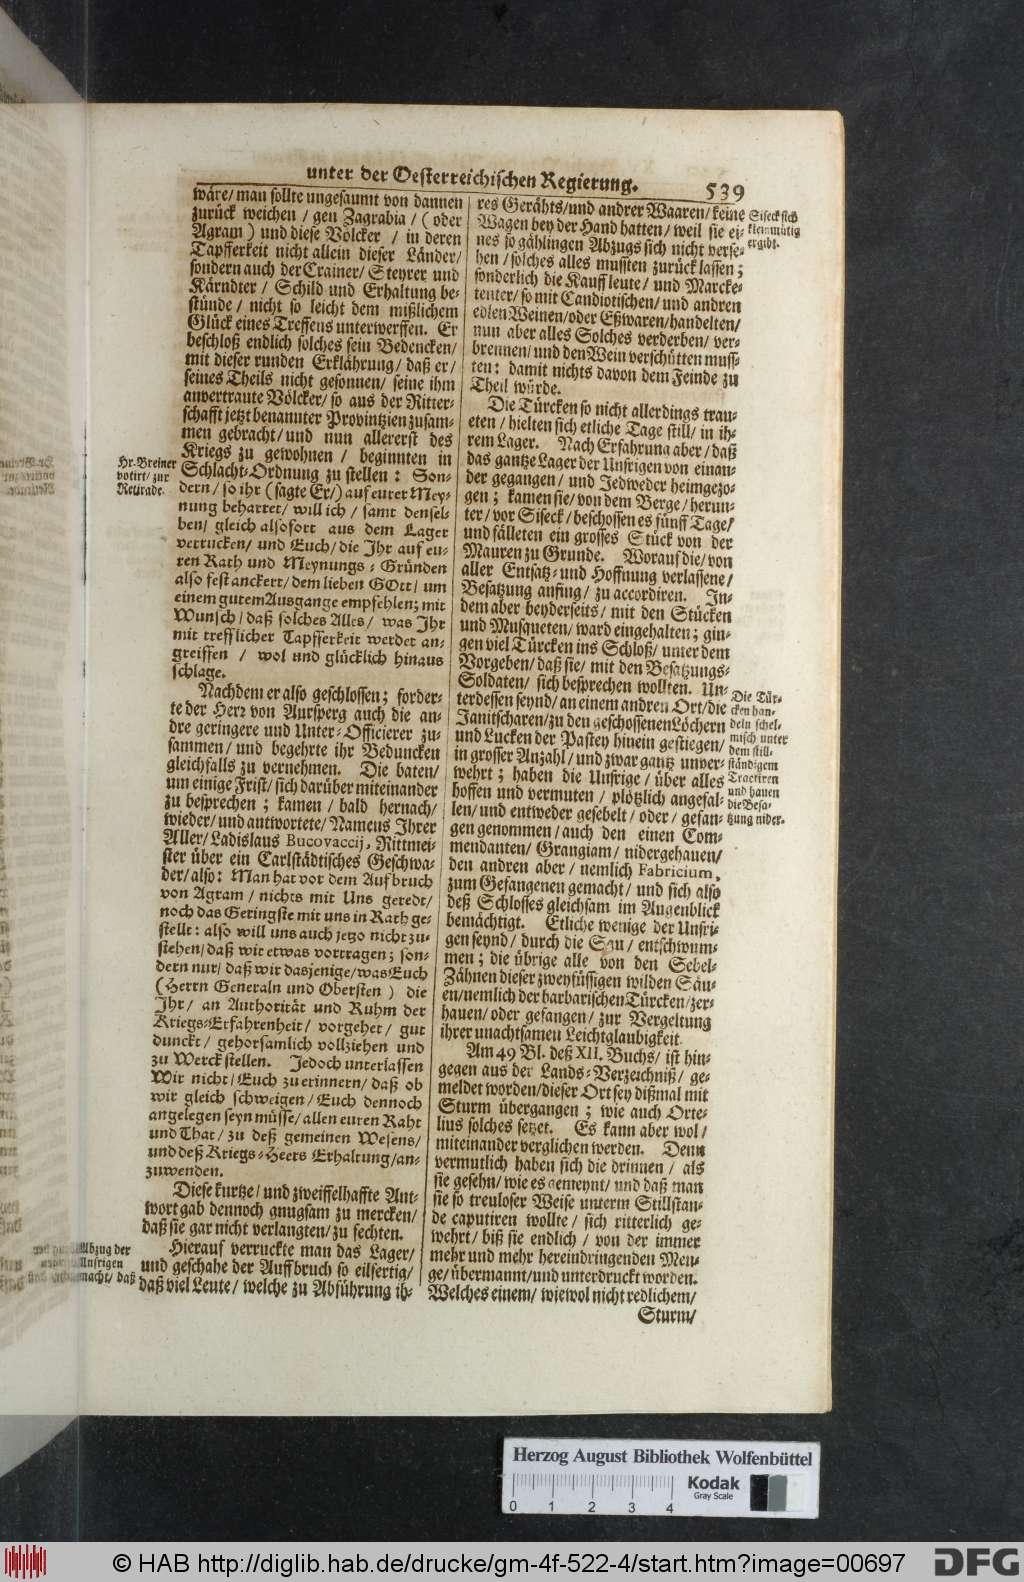 unter der Oesterreichischen Regierung. 539
wäre/ man sollte ungesaumt von dannen
zurück weichen / gen Zagrabia / (oder
Agram) und diese Völcker / in deren
Tapfferkeit nicht allein dieser Länder/
sondern auch der Crainer/ Steyrer und
Kärndter / Schild und Erhaltung be-
stünde / nicht so leicht dem mißlichem
Glück eines Treffens unterwerffen. Er
beschloß endlich solches sein Bedencken/
mit dieser runden Erklährung/ daß er/
seines Theils nicht gesonnen/ seine ihm
anvertraute Völcker/ so aus der Ritter-
schafft jetzt benannter Provintzien zusam-
men gebracht/ und nun allererst des
Kriegs zu gewohnen / beginnten in
Schlacht-Ordnung zu stellen: Son-
dern/ so ihr (sagte Er/) auf eurer Mey-
nung beharret/ will ich / samt densel-
ben/ gleich alsofort aus dem Lager
verrucken/ und Euch/ die Ihr auf eu-
ren Rath und Meynungs-Gründen
also fest anckert/ dem lieben GOtt/ um
einem gutem Ausgange empfehlen; mit
Wunsch/ daß solches Alles/ was Ihr
mit trefflicher Tapfferkeit werdet an-
greiffen / wol und glücklich hinaus
schlage.
Hr. Breiner
votirt/ zur
Retirade.
Nachdem er also geschlossen; forder-
te der Herr von Aursperg auch die an-
dre geringere und Unter-Officierer zu-
sammen/ und begehrte ihr Beduncken
gleichfalls zu vernehmen. Die baten/
um einige Frist/ sich darüber miteinander
zu besprechen; kamen/ bald hernach/
wieder/ und antwortete/ Namens Ihrer
Aller/ Ladislaus Bucovaccij, Rittmei-
ster über ein Carlstädtisches Geschwa-
der/ also: Man hat vor dem Aufbruch
von Agram/ nichts mit Uns geredt/
noch das Geringste mit uns in Rath ge-
stellt: also will uns auch jetzo nicht zu-
stehen/ daß wir etwas vortragen; son-
dern nur/ daß wir dasjenige/ was Euch
(Herrn Generaln und Obersten) die
Ihr/ an Authorität und Ruhm der
Kriegs-Erfahrenheit/ vorgehet/ gut
dunckt/ gehorsamlich vollziehen und
zu Werck stellen. Jedoch unterlassen
Wir nicht/ Euch zu erinnern/ daß ob
wir gleich schweigen/ Euch dennoch
angelegen seyn müsse/ allen euren Raht
und That/ zu deß gemeinen Wesens/
und deß Kriegs-Heers Erhaltung/ an-
zuwenden.
Diese kurtze/ und zweiffelhaffte Ant-
wort gab dennoch gnugsam zu mercken/
daß sie gar nicht verlangten/ zu fechten.
Hierauf verruckte man das Lager/
und geschahe der Auffbruch so eilfertig/
daß viel Leute/ welche zu Abführung ih-
Abzug der
Unsrigen
macht/ daß
res Gerähts/ und andrer Waaren/ keine
Wagen bey der Hand hatten/ weil sie ei-
nes so gählingen Abzugs sich nicht verse-
hen/ solches alles mussten zurück lassen;
sonderlich die Kauffleute/ und Marcke-
tenter/ so mit Candiotischen/ und andren
edlen Weinen/ oder Eßwaren/ handelten/
nun aber alles Solches verderben/ ver-
brennen/ und den Wein verschütten muss-
ten: damit nichts davon dem Feinde zu
Theil würde.
Siseck sich
kleinmütig
ergibt.
Die Türcken so nicht allerdings trau-
eten/ hielten sich etliche Tage still/ in ih-
rem Lager. Nach Erfahrung aber/ daß
das gantze Lager der Unsrigen von einan-
der gegangen/ und Jedweder heimgezo-
gen; kamen sie/ von dem Berge/ herun-
ter/ vor Siseck/ beschossen es fünff Tage/
und fälleten ein grosses Stück von der
Mauren zu Grunde. Worauf die/ von
aller Entsatz- und Hoffnung verlassene/
Besatzung anfing/ zu accordiren. In-
dem aber beyderseits/ mit den Stücken
und Musqueten/ ward eingehalten; gin-
gen viel Türcken ins Schloß/ unter dem
Vorgeben/ daß sie/ mit den Besatzungs-
Soldaten/ sich besprechen wollten. Un-
terdessen seynd/ an einem andren Ort/ die
Janitscharen/ zu den geschossenen Löchern
und Lucken der Pastey hinein gestiegen/
in grosser Anzahl/ und zwar gantz unver-
wehrt; haben die Unsrige/ über alles
hoffen und vermuten/ plötzlich angefal-
len/ und entweder gesebelt/ oder/ gefan-
gen genommen/ auch den einen Com-
mendanten/ Grangiam/ nidergehauen/
den andren aber/ nemlich Fabricium,
zum Gefangenen gemacht/ und sich also
deß Schlosses gleichsam im Augenblick
bemächtigt. Etliche wenige der Unsri-
gen seynd/ durch die Sau/ entschwum-
men; die übrige alle von den Sebel-
Zähnen dieser zweyfüssigen wilden Säu-
en/ nemlich der barbarischen Türcken/ zer-
hauen/ oder gefangen/ zur Vergeltung
ihrer unachtsamen Leichtglaubigkeit.
Die Tür-
cken han-
deln schel-
misch unter
dem still-
ständigem
Tractiren
und hauen
die Besa-
tzung nider.
Am 49 Bl. deß XII. Buchs/ ist hin-
gegen aus der Lands-Verzeichniß/ ge-
meldet worden/ dieser Ort sey dißmal mit
Sturm übergangen; wie auch Orte-
lius solches setzet. Es kann aber wol/
miteinander verglichen werden. Denn
vermutlich haben sich die drinnen/ als
sie gesehn/ wie es gemeynt/ und daß man
sie so treuloser Weise unterm Stillstan-
de caputiren wollte/ sich ritterlich ge-
wehrt/ biß sie endlich/ von der immer
mehr und mehr hereindringenden Men-
ge/ übermannt/ und unterdruckt worden.
Welches einem/ wiewol nicht redlichem/
Sturm/
Herzog August Bibliothek Wolfenbüttel
Kodak
Gray Scale
0 1 2 3 4
© HAB http://diglib.hab.de/drucke/gm-4f-522-4/start.htm?image=00697
DFG